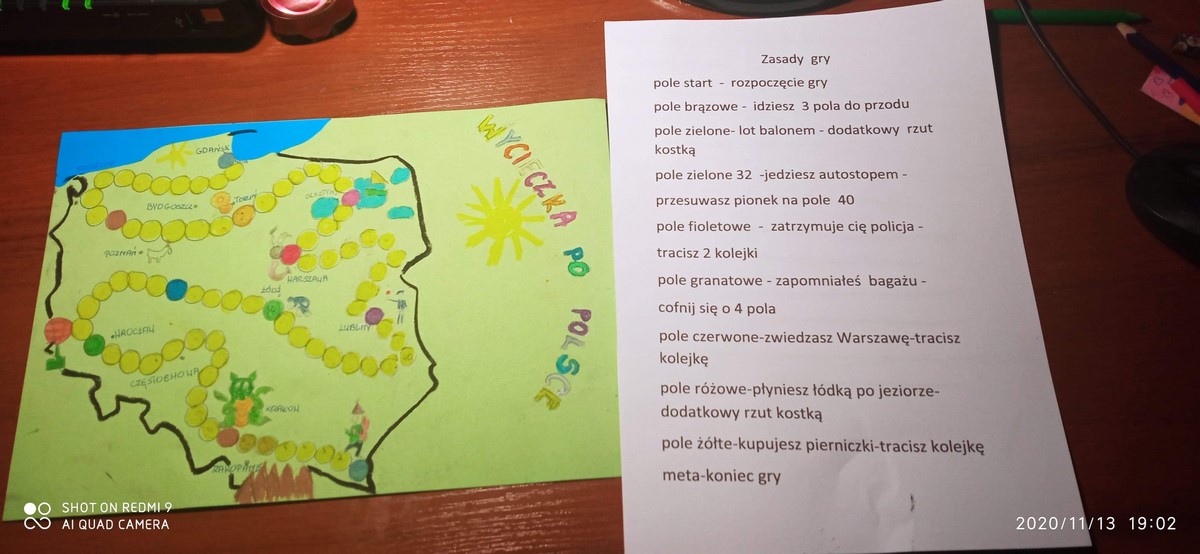 WYCIECZKA PO POLSCE
GDAŃSK
OLSZTYN
TORUŃ
BYDGOSZCZ
POZNAŃ
WARSZAWA
ŁÓDŹ
LUBLIN
WROCŁAW
CZĘSTOCHOWA
KRAKÓW
ZAKOPANE
Zasady gry
pole start - rozpoczęcie gry
pole brązowe - idziesz 3 pola do przodu
pole zielone- lot balonem - dodatkowy rzut
kostką
pole zielone 32 -jedziesz autostopem -
przesuwasz pionek na pole 40
pole fioletowe - zatrzymuje cię policja -
tracisz 2 kolejki
pole granatowe - zapomniałeś bagażu -
cofnij się o 4 pola
pole czerwone-zwiedzasz Warszawę-tracisz
kolejkę
pole różowe-płyniesz łódką po jeziorze-
dodatkowy rzut kostką
pole żółte-kupujesz pierniczki-tracisz kolejkę
meta-koniec gry
SHOT ON REDMI 9
AI QUAD CAMERA
2020/11/13 19:02